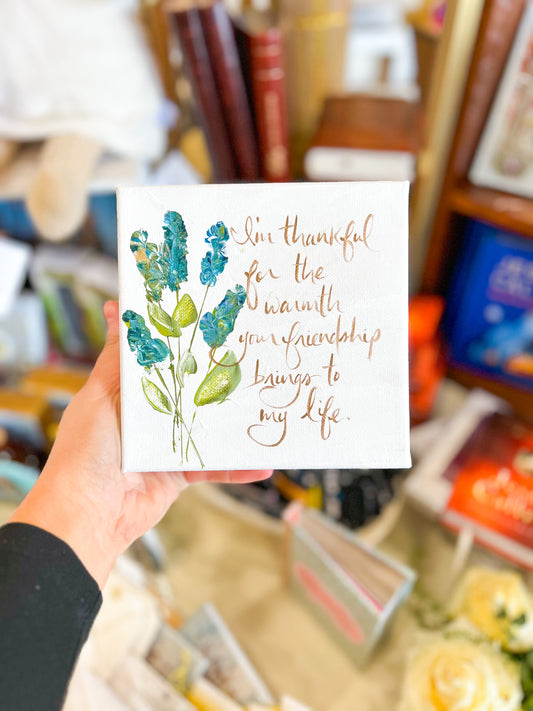 I'm thankful
for the
warmth
your friendship
brings to
my life.